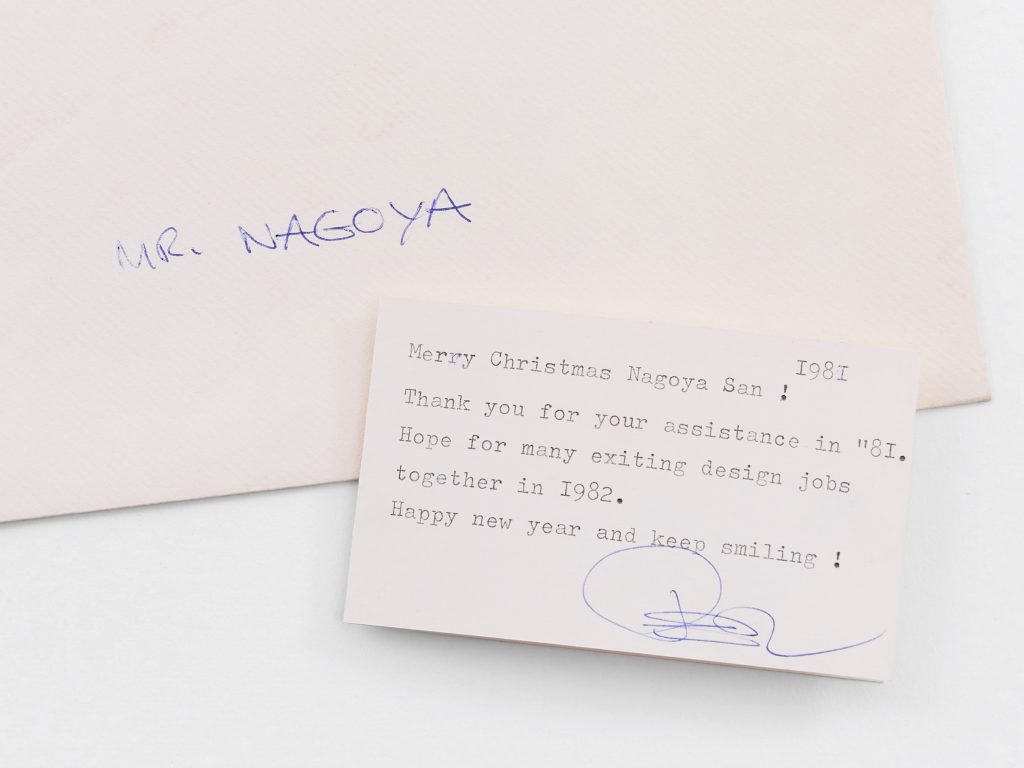 MR. NAGOYA
1981
Merry Christmas Nagoya San !
Thank you for your assistance in "81.
Hope for many exiting design jobs
together in 1982.
Happy new year and keep smiling !